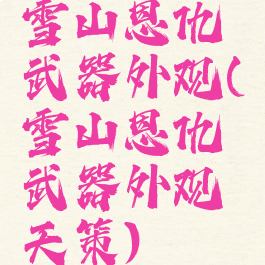 雪山恩仇
武器外观(
雪山恩仇
武器外观
天策)